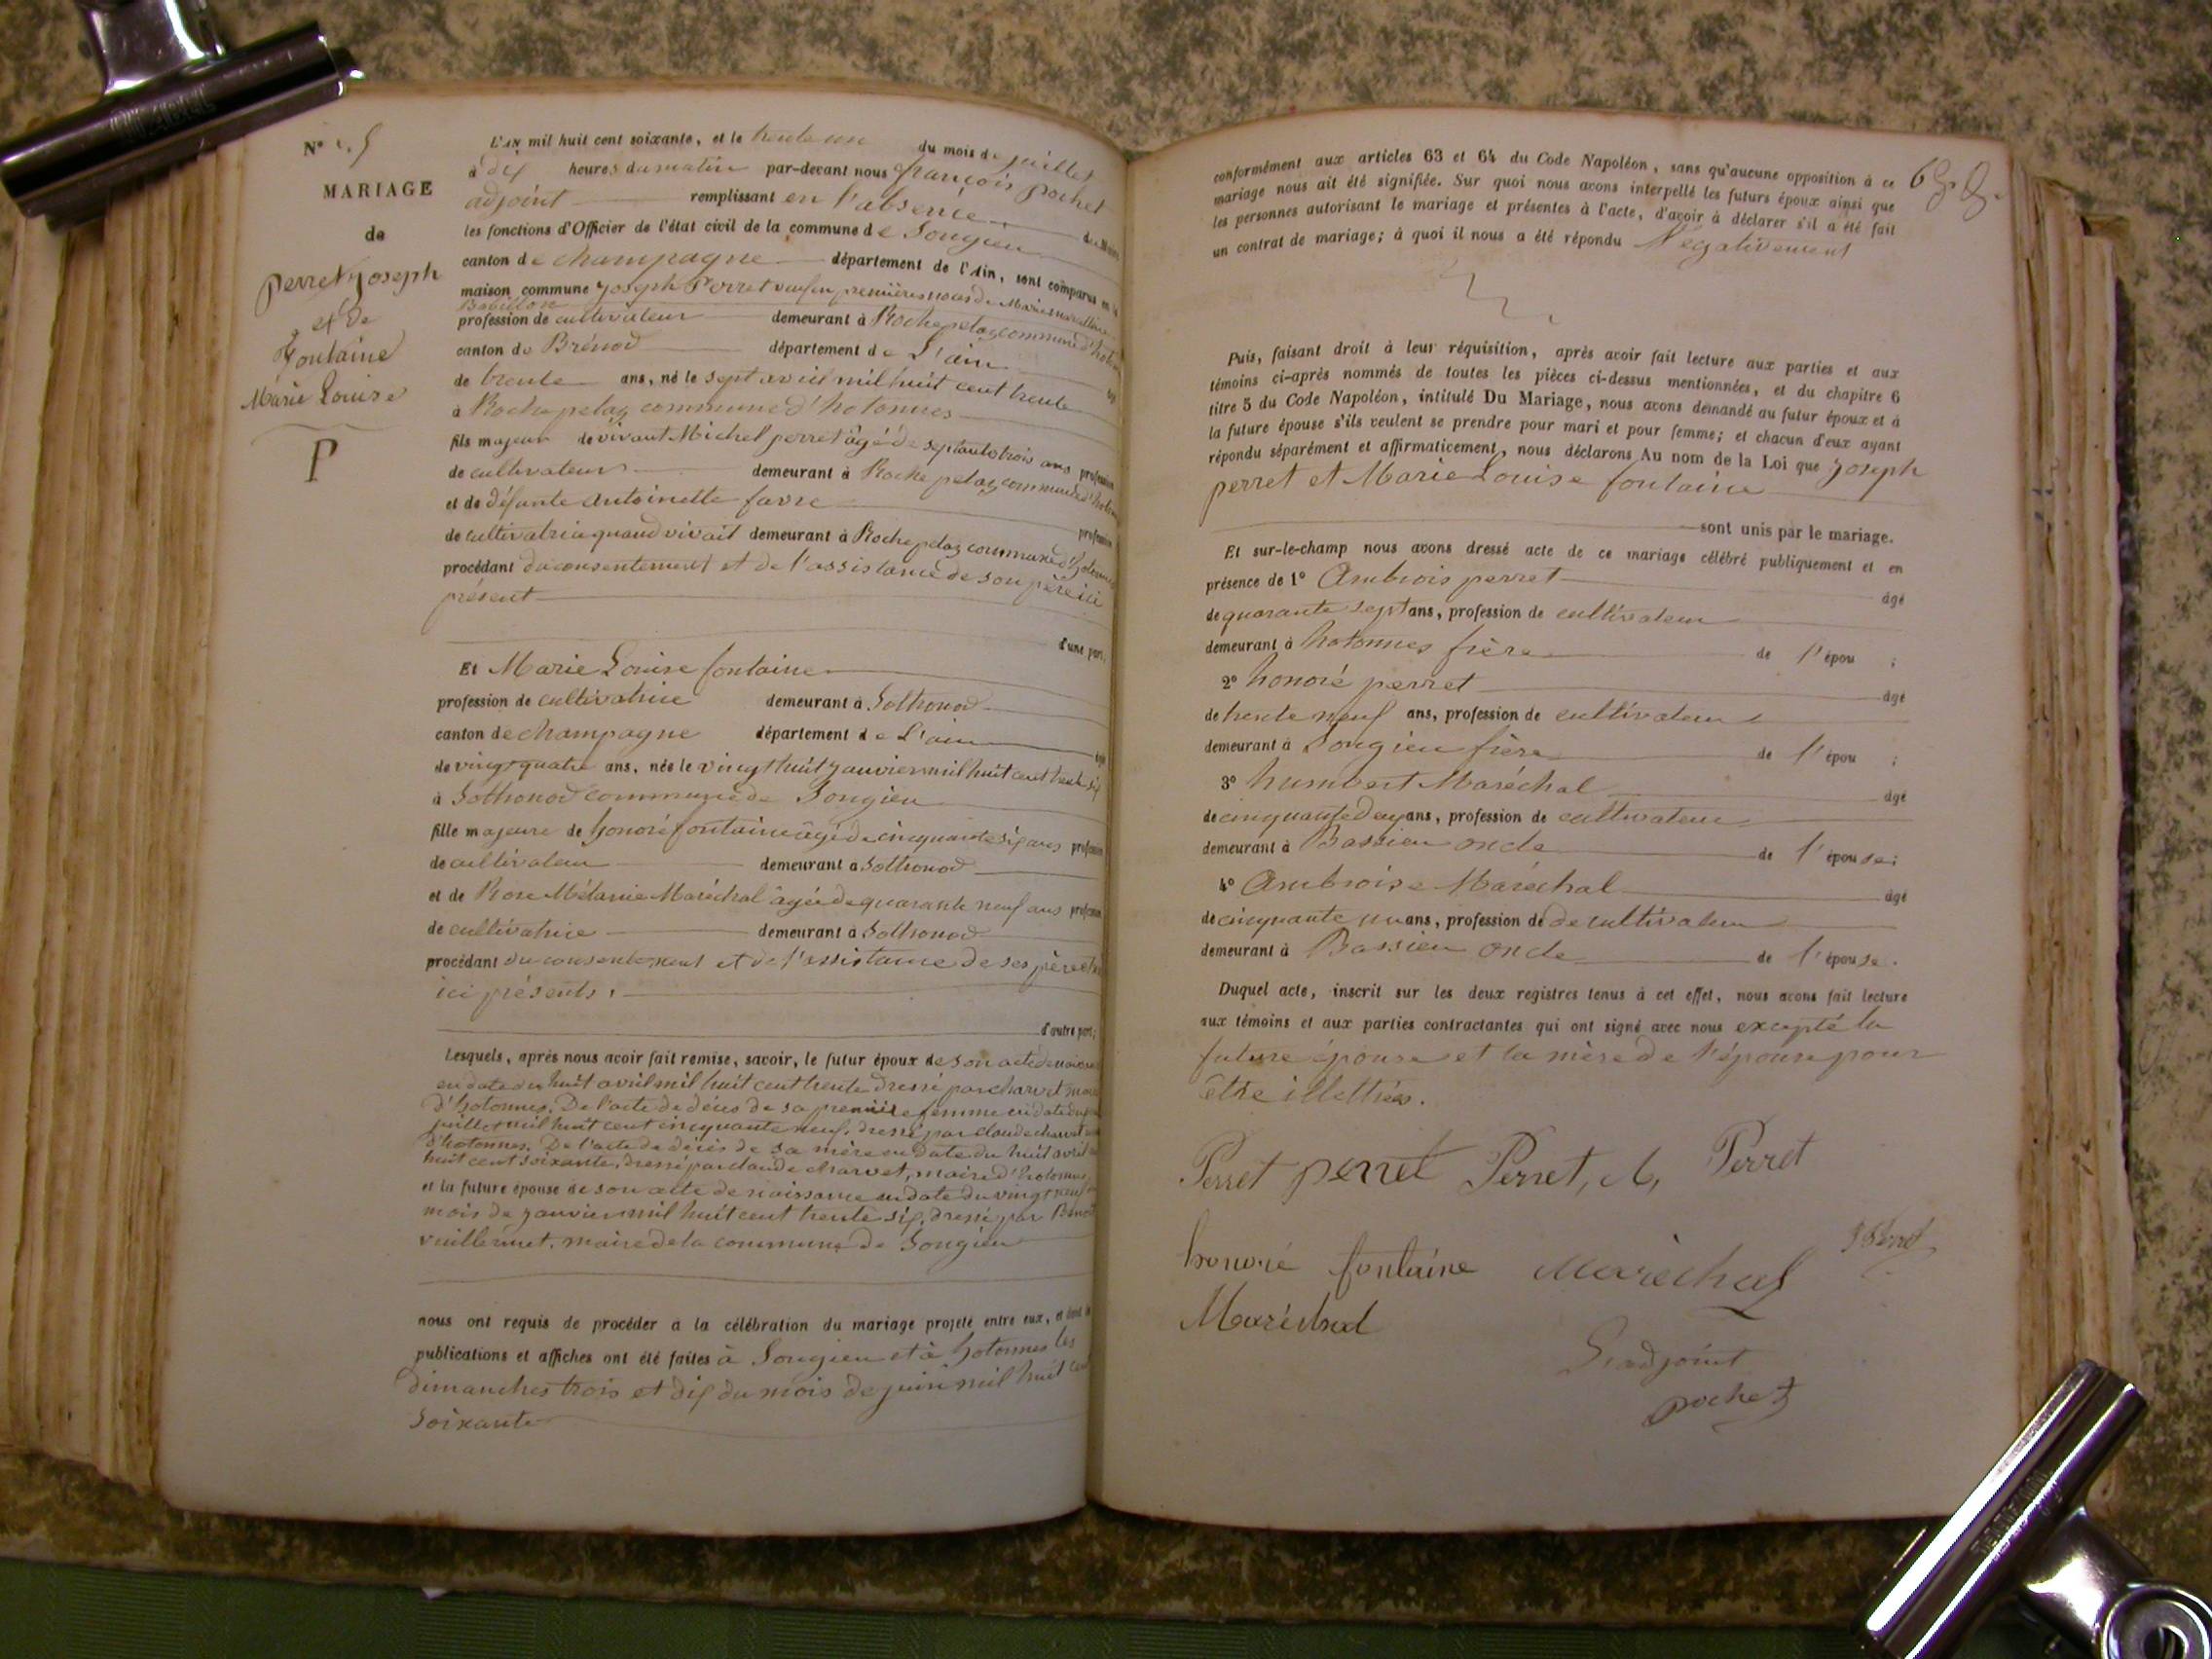 N° 5
MARIAGE
de
Perret Joseph
et de
Fontaine
Marie Louise
P
L'AN mil huit cent soixante, et le trente un du mois de juillet
à dix heures du matin par-devant nous françois pochet
adjoint remplissant en l'absence du Maire
les fonctions d'Officier de l'état civil de la commune de Songieu
canton de champagne département de l'Ain, sont comparus en la
maison commune Joseph Perret veuf en premières noces de Marie
Babillon
profession de cultivateur demeurant à Rochepelaz commune d'hotonnes
canton de Brénod département de L'ain
de trente ans, né le sept avril mil huit cent trente
à Rochepelaz commune d'hotonnes
fils majeur de vivant Michel perret âgé de septante trois ans profession
de cultivateur demeurant à Rochepelaz commune d'hotonnes
et de défunte Antoinette favre
profession
de cultivatrice quand vivait demeurant à Rochepelaz commune d'hotonnes
procédant du consentement et de l'assistance de son père ici
présent
d'une part,
Et Marie Louise fontaine
profession de cultivatrice demeurant à Sothonod
canton de champagne département de L'ain
de vingt quatre ans, née le vingt huit Janvier mil huit cent trente six
à Sothonod commune de Songieu
fille majeure de honoré fontaine âgé de cinquante six ans profession
de cultivateur demeurant à Sothonod
et de Rose Mélanie Maréchal âgée de quarante neuf ans profession
de cultivatrice demeurant à Sothonod
procédant du consentement et de l'assistance de ses père et
ici présents.
d'autre part;
Lesquels, après nous avoir fait remise, savoir, le futur époux de son acte de naissance
en date du huit avril mil huit cent trente dressé par charvet maire
d'hotonnes. De l'acte de décès de sa première femme en date du
juillet mil huit cent cinquante neuf, dressé par claude charvet
d'hotonnes. De l'acte de décès de sa mère en date du huit avril
huit cent soixante, dressé par claude charvet, maire d'hotonnes
et la future épouse de son acte de naissance en date du vingt neuf
mois de Janvier mil huit cent trente six, dressé par Benoit
vuillermet, maire de la commune de Songieu
nous ont requis de procéder à la célébration du mariage projeté entre eux, et dont les
publications et affiches ont été faites à Songieu et à hotonnes les
dimanches trois et dix du mois de juin mil huit cent
Soixante
conformément aux articles 63 et 64 du Code Napoléon, sans qu'aucune opposition à ce
mariage nous ait été signifiée. Sur quoi nous avons interpellé les futurs époux ainsi que
les personnes autorisant le mariage et présentes à l'acte, d'avoir à déclarer s'il a été fait
un contrat de mariage; à quoi il nous a été répondu Négativement
Puis, faisant droit à leur réquisition, après avoir fait lecture aux parties et aux
témoins ci-après nommés de toutes les pièces ci-dessus mentionnées, et du chapitre 6
titre 5 du Code Napoléon, intitulé Du Mariage, nous avons demandé au futur époux et à
la future épouse s'ils veulent se prendre pour mari et pour femme; et chacun d'eux ayant
répondu séparément et affirmativement, nous déclarons Au nom de la Loi que Joseph
perret et Marie Louise fontaine
sont unis par le mariage.
Et sur-le-champ nous avons dressé acte de ce mariage célébré publiquement et en
présence de 1° Ambrois perret âgé
de quarante sept ans, profession de cultivateur
demeurant à hotonnes frère de l'épou ;
2° honoré perret âgé
de trente neuf ans, profession de cultivateur
demeurant à Songieu frère de l'épou ;
3° humbert Maréchal âgé
de cinquante deux ans, profession de cultivateur
demeurant à Bassieu oncle de l'épouse;
4° Ambroise Maréchal âgé
de cinquante un ans, profession de de cultivateur
demeurant à Bassieu oncle de l'épouse.
Duquel acte, inscrit sur les deux registres tenus à cet effet, nous avons fait lecture
aux témoins et aux parties contractantes qui ont signé avec nous excepté la
future épouse et la mère de l'épouse pour
être illettrées.
Perret perret Perret, A, Perret
honoré fontaine Maréchal
Maréchal
L'adjoint
pochet